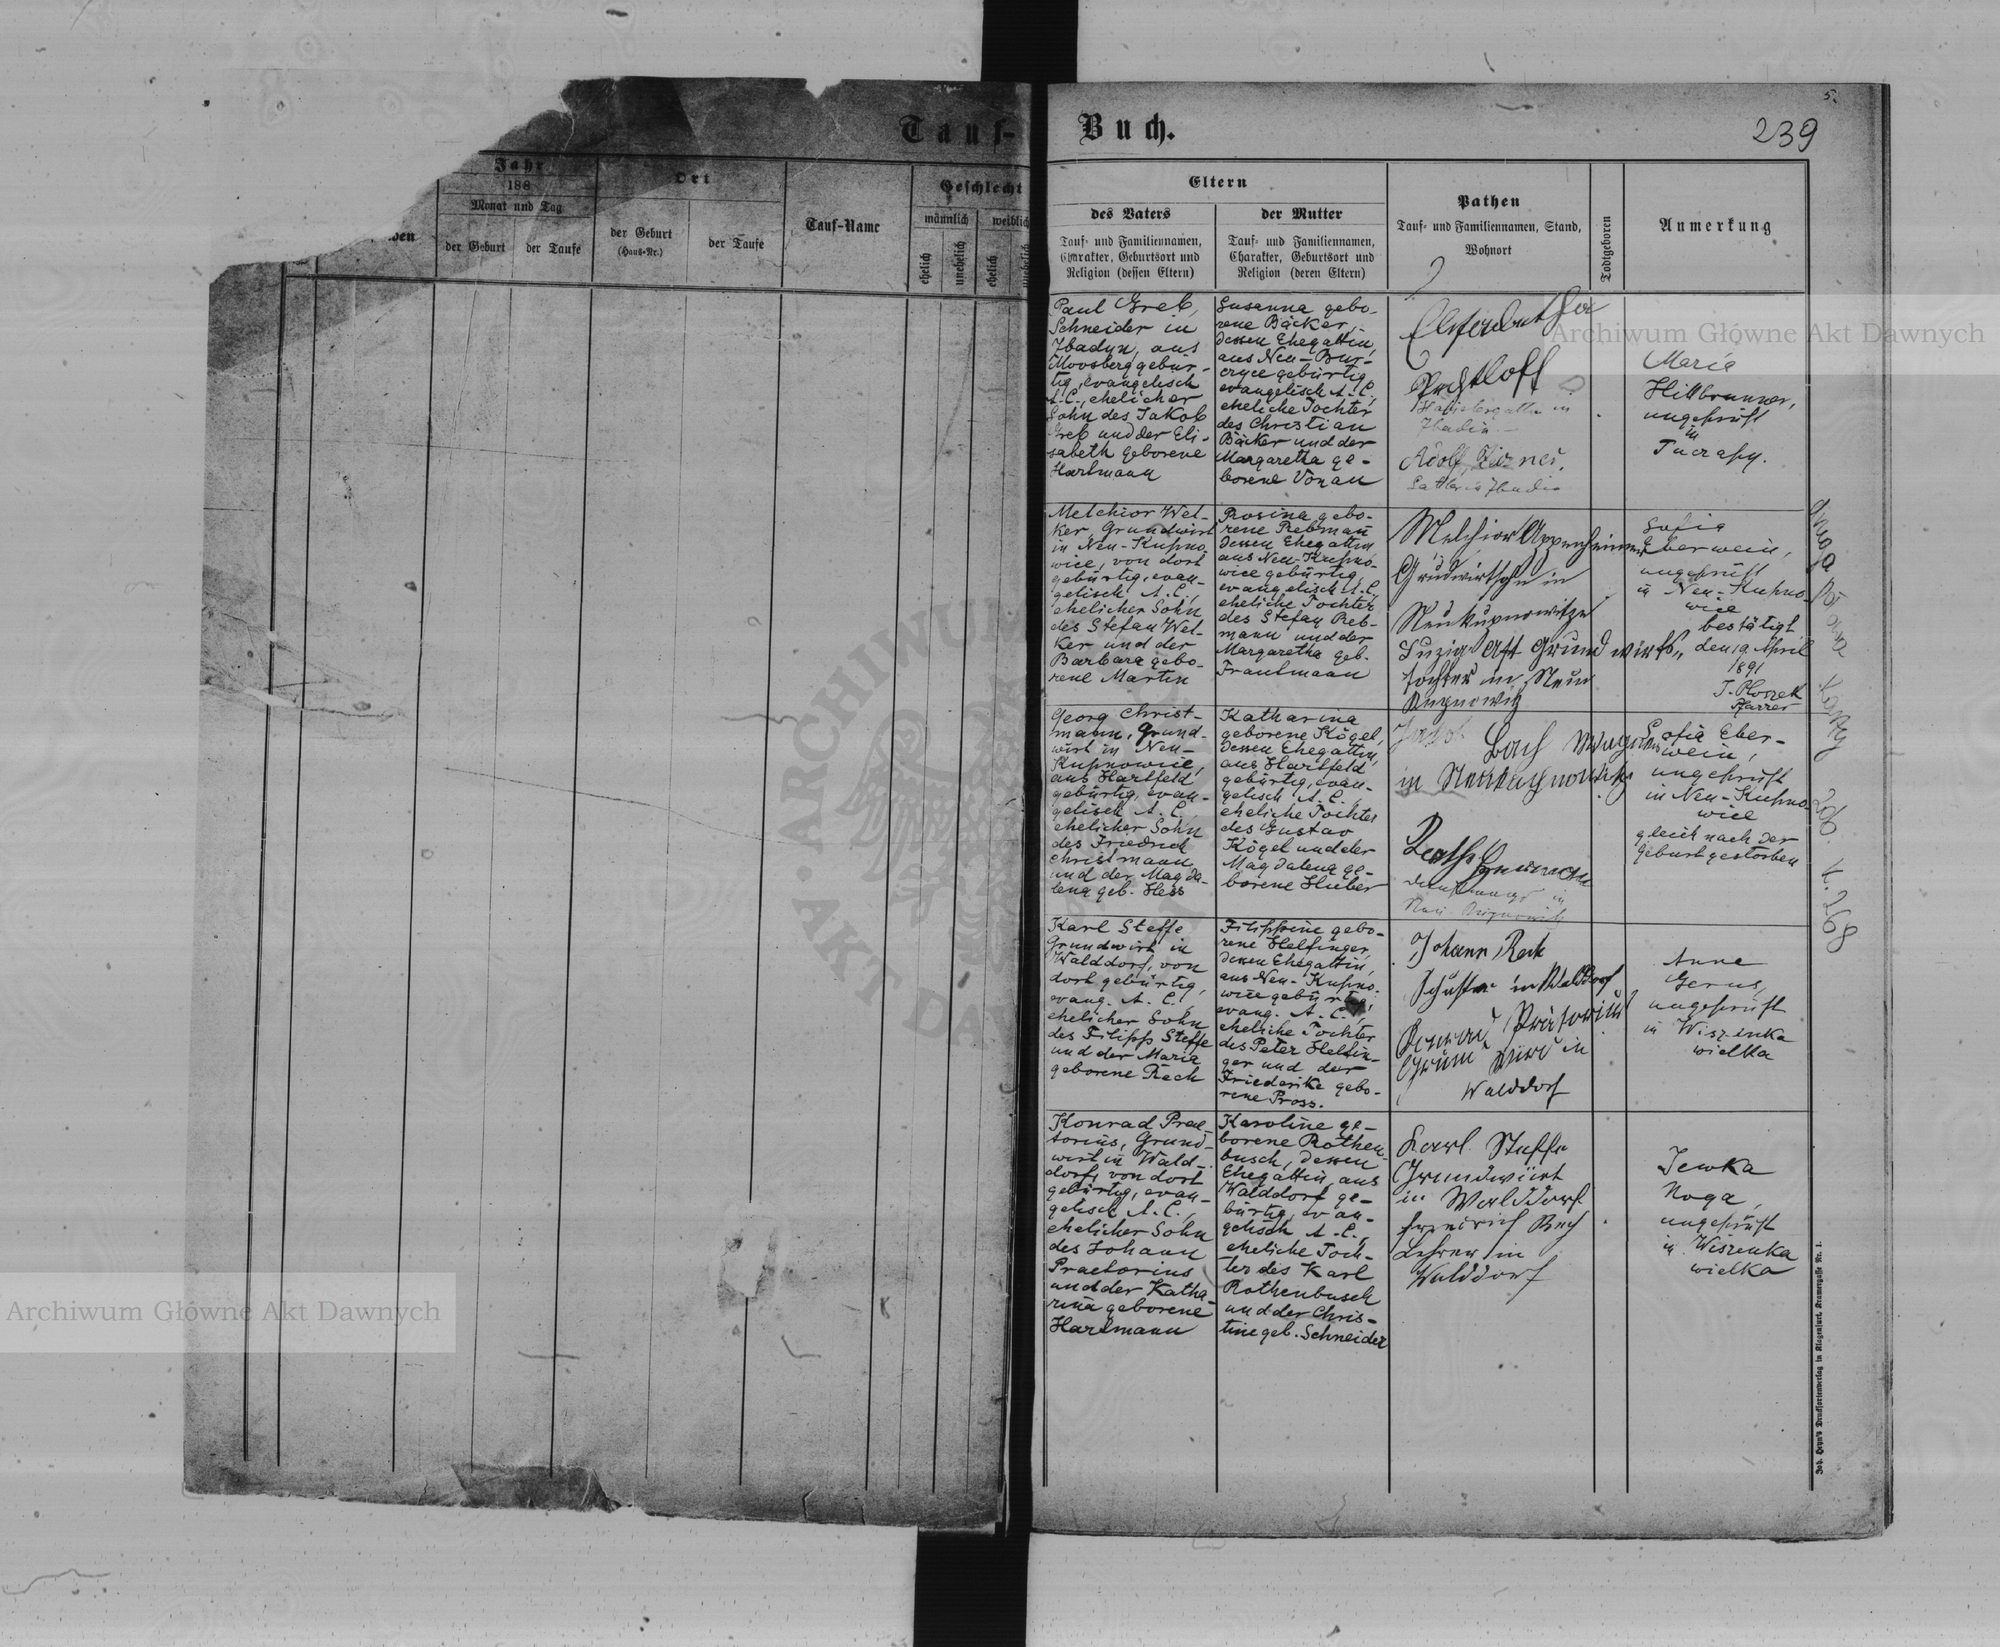 Tauf-Buch.
5.
239
Jahr
188
Monat und Tag
der Geburt
der Taufe
Ort
der Geburt
(Haus-Nr.)
der Taufe
Tauf-Name
Geschlecht
männlich
weiblich
ehelich
unehelich
ehelich
unehelich
Eltern
des Vaters
Tauf- und Familiennamen,
Charakter, Geburtsort und
Religion (dessen Eltern)
der Mutter
Tauf- und Familiennamen,
Charakter, Geburtsort und
Religion (deren Eltern)
Pathen
Tauf- und Familiennamen, Stand,
Wohnort
Todtgeboren
Anmerkung
Paul Greb,
Schneider in
aus
Moosberg gebür-
tig, evangelisch
A.C., ehelicher
Sohn des Jakob
Greb und der Eli-
sabeth geborene
Hartmann
Susanna gebo-
rene Bäcker,
dessen Ehegattin,
aus Neu-Bur-
czyce gebürtig,
evangelisch A.C.,
eheliche Tochter
des Christian
Bäcker und der
Margaretha ge-
borene Vonau
Adolf
Maria
Hillbrunner,
ungeprüft
in
Tuczapy.
Melchior Wel-
ker, Grundwirt
in Neu-Kupno-
wice, von dort
gebürtig, evan-
gelisch A.C.,
ehelicher Sohn
des Stefan Wel-
ker und der
Barbara gebo-
rene Martin
Rosina gebo-
rene Rebmann
dessen Ehegattin
aus Neu-Kupno-
wice gebürtig,
evangelisch A.C.,
eheliche Tochter
des Stefan Reb-
mann und der
Margaretha geb.
Trautmann
Melchior Appenheimer
in
Neukupnowitze
Grundwirts-
tochter in Neu
Kupnowitz
Sofia
Eberwein,
ungeprüft
in Neu-Kupno-
wice
bestätigt
den 19 April
1891
Pfarrer
Georg Christ-
mann, Grund-
wirt in Neu-
Kupnowice,
aus Hartfeld
gebürtig, evan-
gelisch A.C.,
ehelicher Sohn
des Friedrich
Christmann
und der Magda-
lena geb. Hess
Katharina
geborene Kögel,
dessen Ehegattin,
aus Hartfeld
gebürtig, evan-
gelisch A.C.
eheliche Tochter
des Gustav
Kögel und der
Magdalena ge-
borene Huber
in
Sofia Eber-
wein,
ungeprüft
in Neu-Kupno-
wice
gleich nach der
Geburt gestorben
Karl Steffe
Grundwirt in
Walddorf, von
dort gebürtig,
evang. A.C.,
ehelicher Sohn
des Filipp Steffe
und der Maria
geborene Rech
Filippine gebo-
rene Helfinger,
dessen Ehegattin,
aus Neu-Kupno-
wice gebürtig,
evang. A.C.,
eheliche Tochter
des Peter Helfin-
ger und der
Friederike gebo-
rene Pross.
Johann Rech
Schuster in Walddorf
in
Walddorf
Anna
Gerus,
ungeprüft
in Wiszenka
wielka
Konrad Prae-
torius, Grund-
wirt in Wald-
dorf, von dort
gebürtig, evan-
gelisch A.C.,
ehelicher Sohn
des Johann
Praetorius
und der Katha-
rina geborene
Hartmann
Karoline ge-
borene Rothen-
busch, dessen
Ehegattin, aus
Walddorf ge-
bürtig, evan-
gelisch A.C.,
eheliche Toch-
ter des Karl
Rothenbusch
und der Chris-
tine geb. Schneider
Karl Steffe
Grundwirt
in Walddorf
Rech
Lehrer in
Walddorf
Jewka
Noga,
ungeprüft
in Wiszenka
wielka
Joh. Heyn's Drucksortenverlag in Klagenfurt, Kramergasse Nr. 1.
Archiwum Główne Akt Dawnych
Archiwum Główne Akt Dawnych